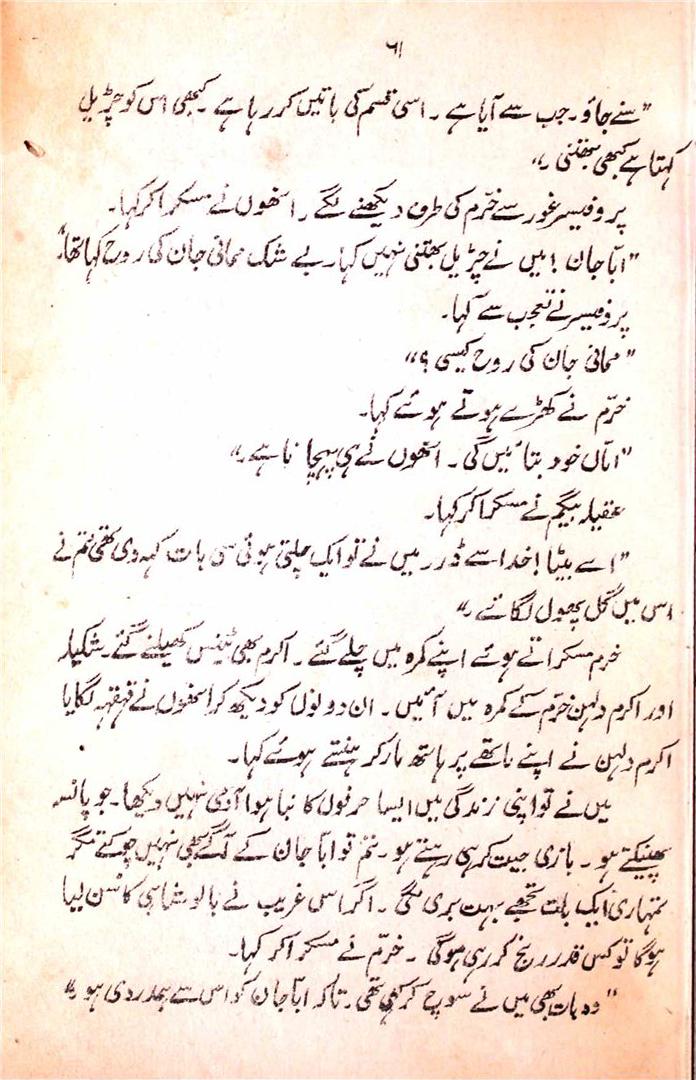 ۶۱
"سنے جاؤ۔ جب سے آیا ہے۔ اسی قسم کی باتیں کر رہا ہے۔ کبھی اس کو چڑیل
کہتا ہے کبھی بھتنی۔"
پروفیسر غور سے خرّم کی طرف دیکھنے لگے۔ انھوں نے مسکرا کر کہا۔
"ابّا جان! میں نے چڑیل بھتنی نہیں کہا۔ بے شک ممانی جان کی روح کہا تھا"
پروفیسر نے تعجب سے کہا۔
"ممانی جان کی روح کیسی؟"
خرّم نے کھڑے ہوتے ہوئے کہا۔
"امّاں خود بتائیں گی۔ انھوں نے ہی پہچانا ہے۔"
عقیلہ بیگم نے مسکرا کر کہا۔
"اے بیٹا! خدا سے ڈر۔ میں نے تو ایک چلتی ہوئی سی بات کہہ دی تھی تم نے
اس میں گل پھول لگائے۔"
خرم مسکراتے ہوئے اپنے کمرہ میں چلے گئے۔ اکرم بھی ٹینس کھیلنے گئے۔ شکیلہ
اور اکرم دلہن خرّم کے کمرہ میں آئیں۔ ان دونوں کو دیکھ کر انھوں نے قہقہہ لگایا
اکرم دلہن نے اپنے ماتھے پر ہاتھ مار کر ہنستے ہوئے کہا۔
میں نے تو اپنی زندگی میں ایسا حرفوں کا بنا ہوا آدمی نہیں دیکھا۔ جو پانسہ
پھینکتے ہو۔ بازی جیت کر ہی رہتے ہو۔ تم تو ابّا جان کے آگے بھی نہیں چوکتے مگر
تمہاری ایک بات مجھے بہت بری لگی۔ اگر اس غریب نے بالو شاہی کا سن لیا
ہوگا تو کس قدر رنج کر رہی ہوگی۔ خرّم نے مسکرا کر کہا۔
"وہ بات بھی میں نے سوچ کر کہی تھی۔ تاکہ ابّا جان کو اس سے ہمدردی ہو۔"